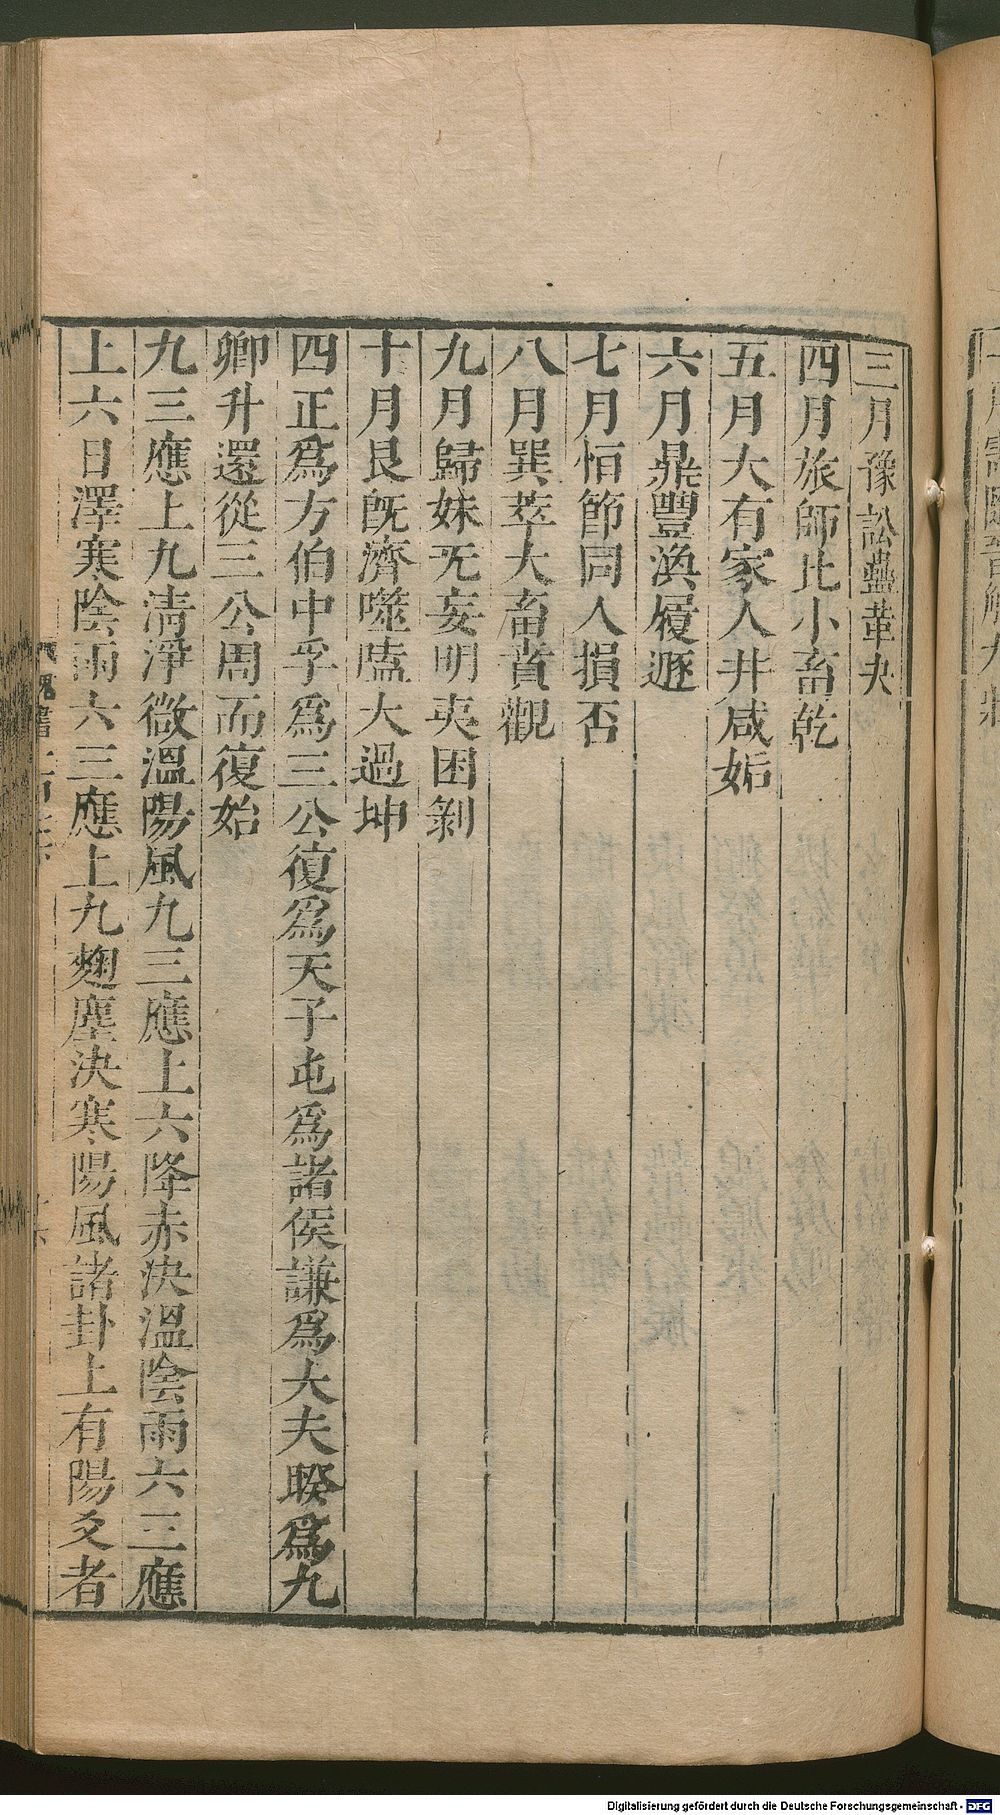 三月豫訟蠱革夬
四月旅師比小畜乾
五月大有家人井咸姤
六月鼎豐渙履遯
七月恒節同人損否
八月巽萃大畜賁觀
九月歸妹无妄明夷困剝
十月艮旣濟噬嗑大過坤
四正爲方伯中孚爲三公復爲天子屯爲諸侯謙爲大夫睽爲九
卿升還從三公周而復始
九三應上九淸淨微溫陽風九三應上六降赤決溫陰雨六三應
上六日澤寒陰雨六三應上九麹塵決寒陽風諸卦上有陽爻者
魏書
Digitalisierung gefördert durch die Deutsche Forschungsgemeinschaft - DFG